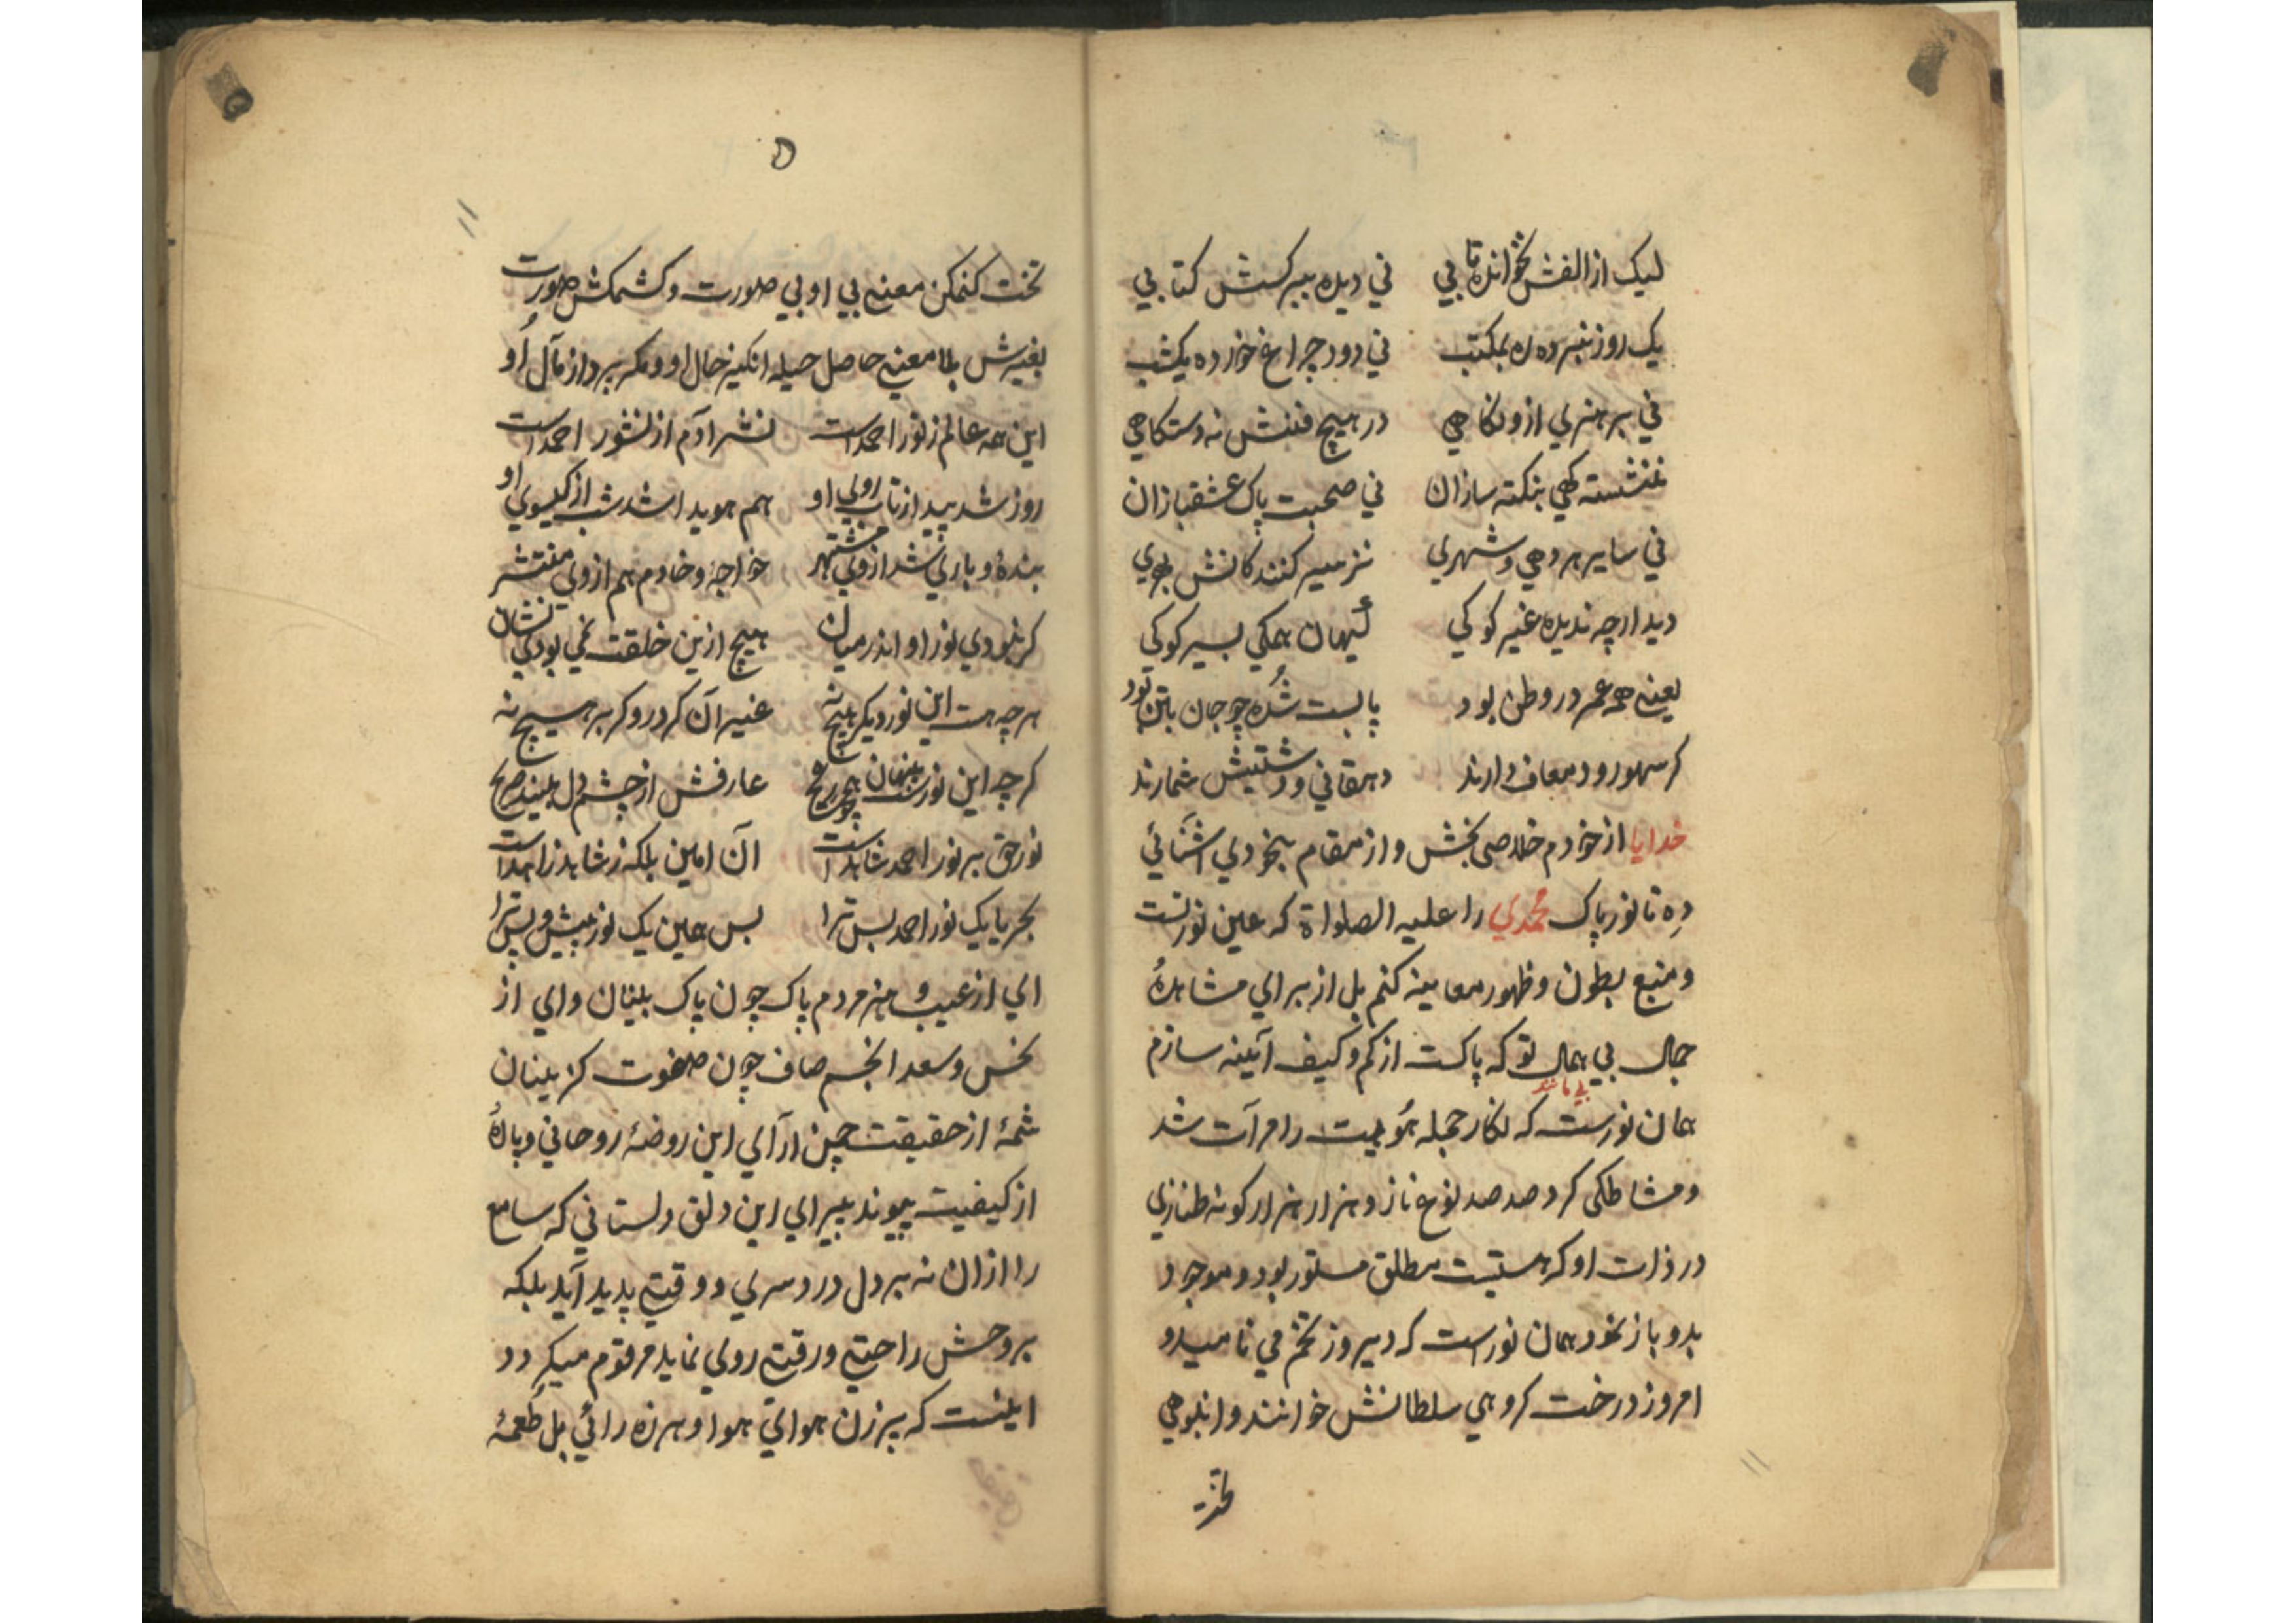 لیک از الفش نخوانده تا بي ني دیده بسیر کسش کتابي
یک روز نبرده ره بمکتب ني دود چراغ خورده یکشب
ني بر هنري ازو نکاهي در هیچ فننش نه دستکاهي
ننشسته کهي بنکته سازان ني صحبت پاک عشقبازان
ني سایر هر دهي و شهري
دیدار چه ندیده غیر کوکي کیهان همکي بسیر کوکي
یعنے همه عمر در وطن بود پا بست شده چو جان بتن بود
کر سهو رود معاف دارند دهقاني و شمارند
خدایا از خودم خلاصي بخش و از مقام بیخودي اشنائي
ده تا نور پاک محمدي را علیه الصلواة که عین نور تست
و منبع بطون و ظهور معاینه کنم بل از براي مشاهدهٔ
جمال بي همال تو که پاکست از کم و کیف آئینه سازم
بي مانند
همان نورست که نکار جمله هویت را مرآت شد
و مشاطکي کرد صد صد نوع ناز و هزار هزار کونه طنازي
در ذات او که هستیست مطلق مستور بود و موجود
بدو باز نمود همان نوراست که دیروز تخم مي نامیدو
امروز درخت کروهي سلطانش خوانند و انبوهي
تخت
۵
تخت کنمکن معنے بي او بي صورت و کشمکش صورت
بغیرش بلا معنے حاصل حیله انکیز حال او و مکر پرداز مآل او
این همه عالم ز نور احمد است نشر آدم از نشور احمد است
روز شد پید از تاب روي او هم هویدا شد شب از کیسوي او
بنده و باري شد از وي مشتهر خواجه و خادم هم از وي منتشر
کر نبودي نور او اندر میان هیچ ازین خلقت نمي بودي نشان
هر چه هست این نور دیکر هیچ نه غیر آن کر در و کر بر هیچ نه
کر چه این نورست پنهان عارفش از چشم دل بیند صریح
نور حق بر نور احمد شاهد است آن امین بلکه ز شاهد زاهد است
بحریا یک نور احمد بس ترا بس همین یک نور پیش و پس ترا
اي از عیب و هنر مردم پاک چون پاک بینان و اي از
نحس و سعد انجم صاف چون صفوت کزینان
شمهٔ از حقیقت چمن آراي این روضهٔ روحاني و پارهٔ
از کیفیت پیوند پیراي این دلق دلستاني که سامع
را ازان نه بر دل درد سري و وقتے پدید آید بلکه
بروحش راحتے و رقتے روي نماید مرقوم میکردد
اینست که پر زن هواي هوا و هرزه رائي بل طعمهٔ